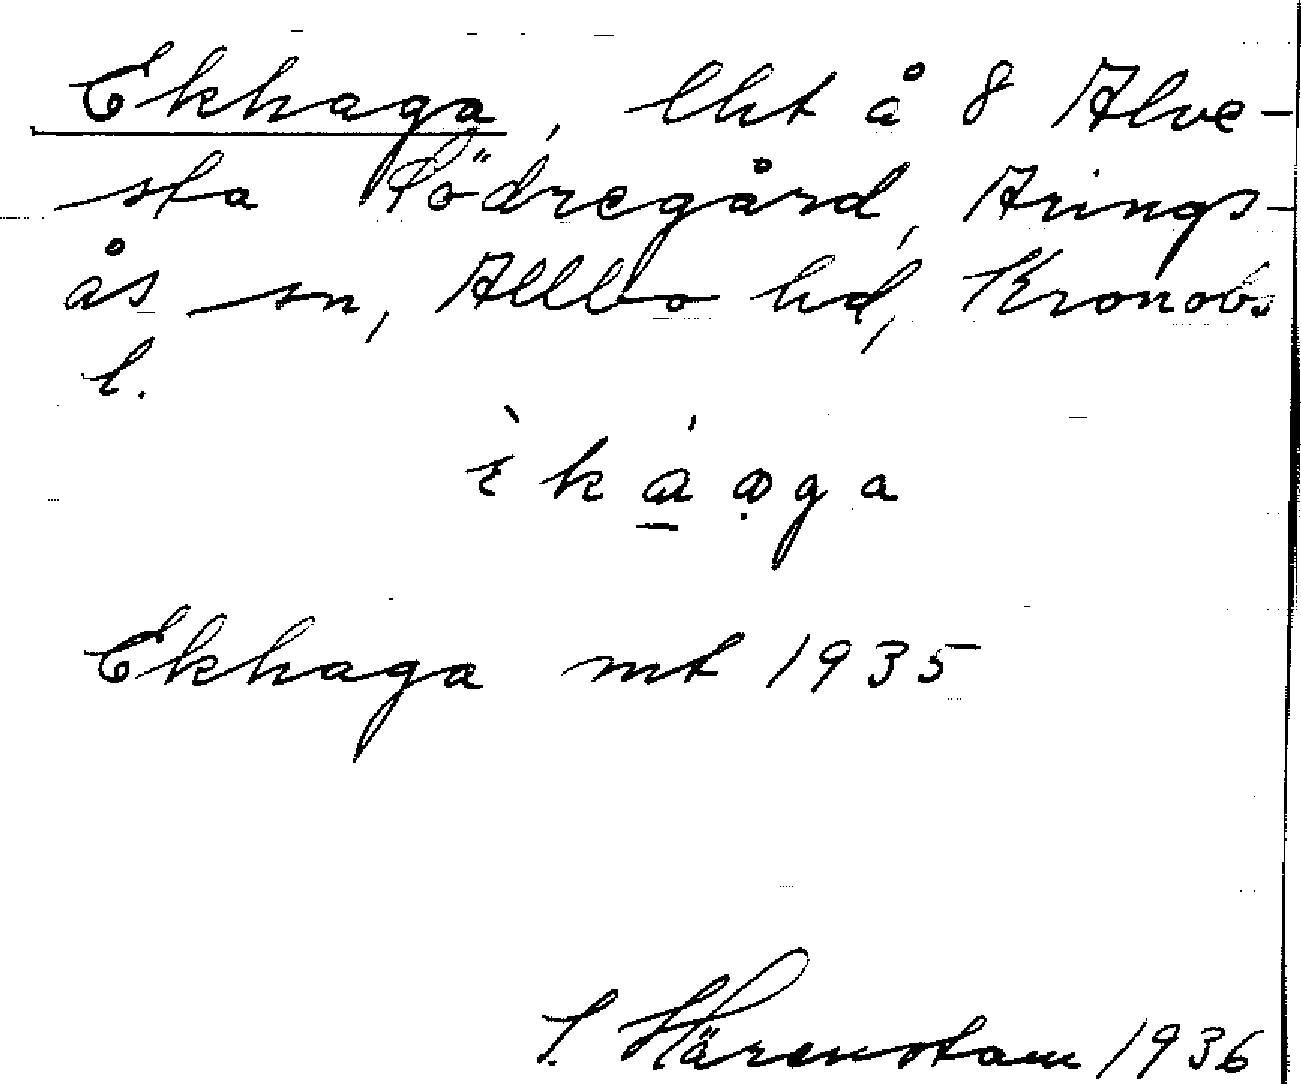 Ekhaga, lht å 8 Alve-
sta Södregård, Arings-
ås sn, Allbo hd, Kronobs
l.
Ekhaga mt 1935
S. Härenstam 1936